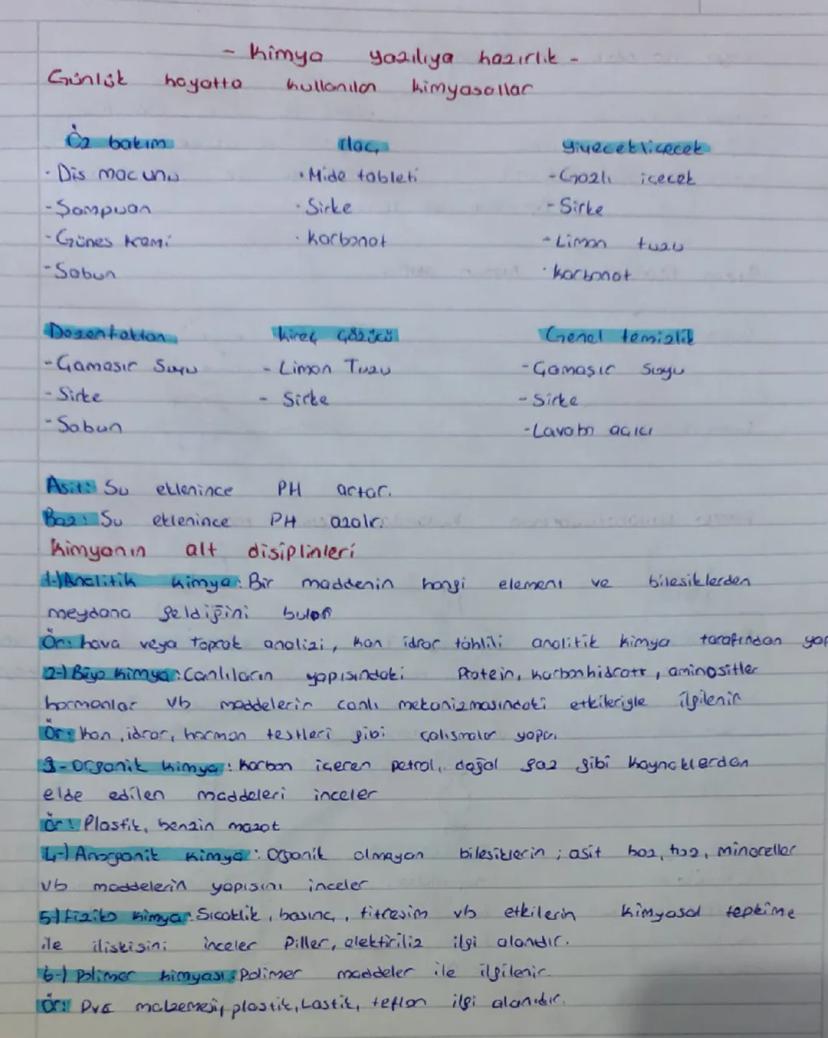 - Kimya yazılıya hazırlık -
Günlük hayatta kullanılan kimyasallar
Öz bakım ilaç yiyecek içecek
· Dis macunu · Mide tableti - Gazlı icecek
- Sampuan · Sirke - Sirke
- Günes kremi · Karbonat - Limon tuzu
- Sabun · karbonat
Dezenfektan kireç çözücü Genel temizlik
- Camasır Suyu - Limon Tuzu - Camaşır suyu
- Sirke - Sirke - Sirke
- Sabun - Lavabo acıcı
Asit: Su eklenince PH artar.
Baz: Su eklenince PH azalr.
Kimyanın alt disiplinleri
1-)Analitik kimya: Bir maddenin hangi element ve bilesiklerden
meydana geldiğini bulur
Ör: hava veya toprak analizi, kan idrar tahlili analitik kimya tarafından yap
2-) Biyo kimya: Canlıların yapısındaki Protein, karbonhidratt, aminositler
hormonlar vb maddelerin canlı mekanizmasındaki etkileriyle ilgilenir
Ör: kan, idrar, hormon testleri gibi calısmalar yapar
3-Organik kimya: Karbon iceren petrol, doğal gaz gibi kaynaklardan
elde edilen maddeleri inceler
ör: Plastik, benzin mazot
4-) Anorganik kimya: organik olmayan bilesiklerin; asit baz, tuz, mineraller
vb maddelerin yapısını inceler
5-) Fiziko kimya: Sıcaklik, basınc, titresim vb etkilerin kimyasal tepkime
ile iliskisini inceler Piller, elektiriliz ilgi alanıdır.
6-) Polimer kimyası: Polimer maddeler ile ilgilenir
Ör: Pvc malzemesi, plastik, Lastik, teflon ilgi alanıdır.